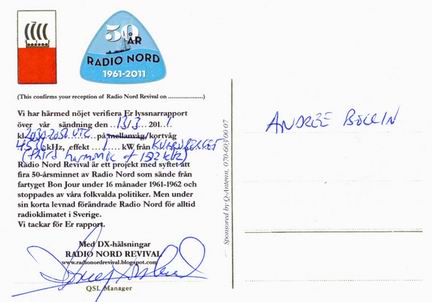 50
ÅR
RADIO NORD
1961-2011
(This confirms your reception of Radio Nord Revival on ....................)
Vi har härmed nöjet verifiera Er lyssnarrapport
över vår sändning den 13/3 2011
kl. 2030-2050 UTC på mellanväg/kortväg
4536 kHz, effekt 1 kW från
(third harmonic of 1512 kHz)
Radio Nord Revival är ett projekt med syftet att
fira 50-årsminnet av Radio Nord som sände från
fartyget Bon Jour under 16 månader 1961-1962 och
stoppades av våra folkvalda politiker. Men under
sin korta levnad förändrade Radio Nord för alltid
radioklimatet i Sverige.
Vi tackar för Er rapport.
Med DX-hälsningar
RADIO NORD REVIVAL
www.radionordrevival.blogspot.com
QSL Manager
Sponsored by Q-Antenn, 070-603 00 07
ANDRÉE BOLLIN